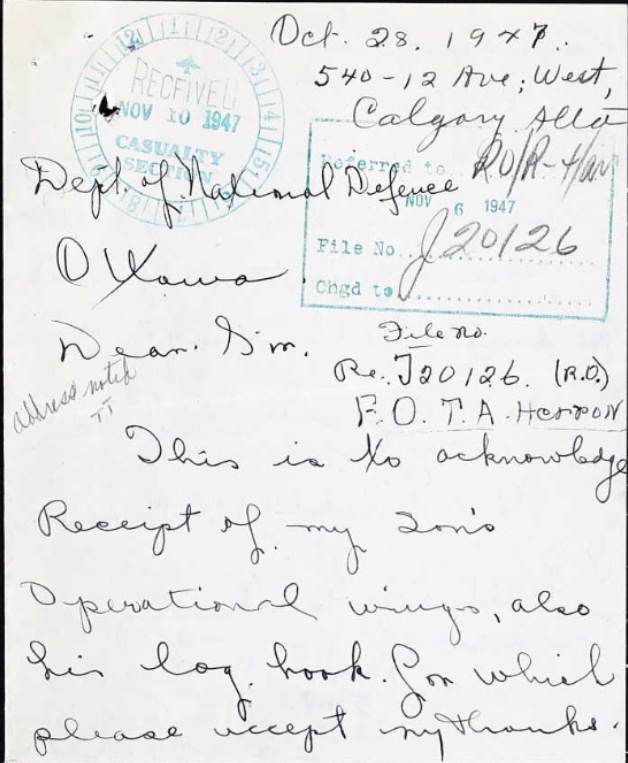 Oct. 28. 1947.
540-12 Ave; West,
Calgary Alta
RECEIVED
NOV 10 1947
CASUALTY
SECTION
Referred to
NOV 6 1947
File No. J20126
Chgd to
Dept. of National Defence
Ottawa
Dear Sir.
File No.
Re. J20126. (R.O.)
F.O. T.A.
address noted
This is to acknowledge
Receipt of my son's
Operational wings, also
his log book. For which
please accept my thanks.